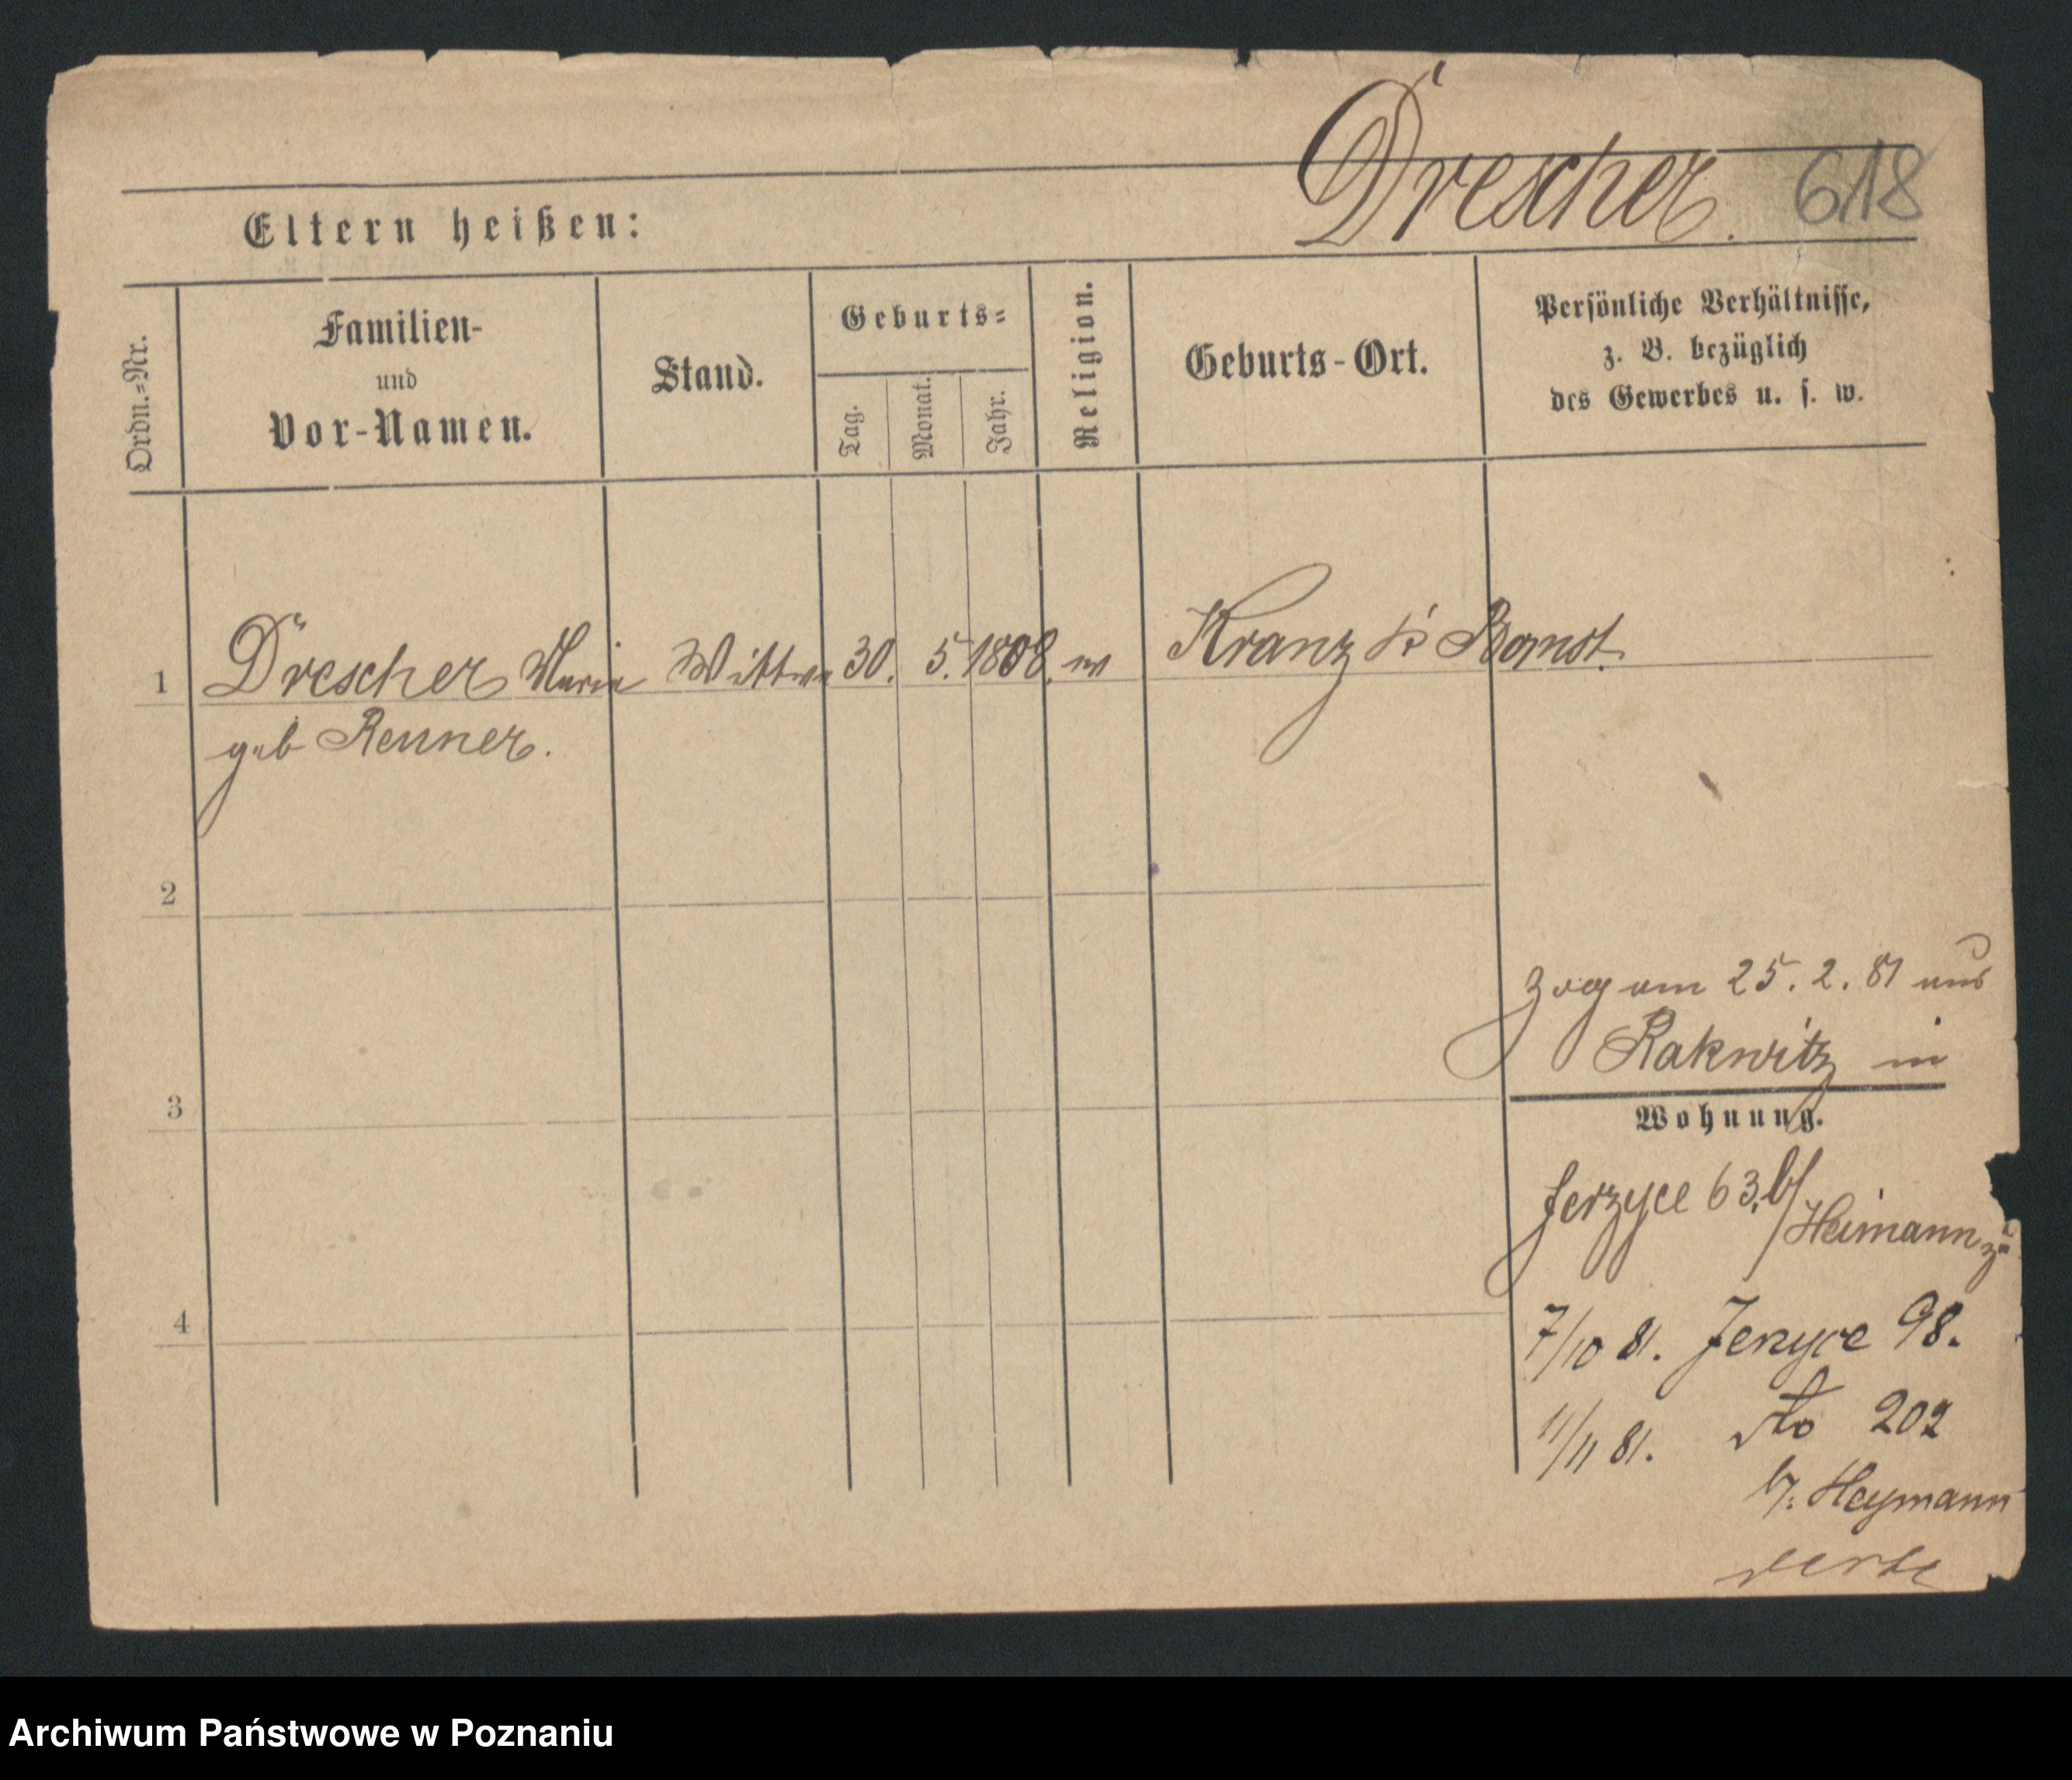 Drescher. 618
Eltern heißen:
Ordn.=Nr.
Familien-
und
Vor-Namen.
Stand.
Geburts=
Tag.
Monat.
Jahr.
Religion.
Geburts-Ort.
Persönliche Verhältnisse,
z. B. bezüglich
des Gewerbes u. s. w.
1 Drescher Marie Wittwe 30. 5. 1808. Kranz Kr Bomst.
geb Renner.
2
3
4
Zog am 25. 2. 81 aus
Rakwitz in
Wohnung.
Jerzyce 63.b/
Heimann
7/10 81. Jerzyce 98.
11/11 81. do 202
b. Heymann
Archiwum Państwowe w Poznaniu